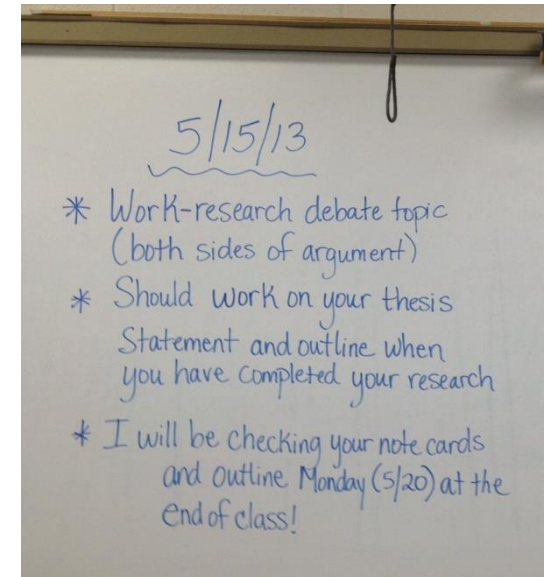 5/15/13
* Work-research debate topic
(both sides of argument)
* Should work on your thesis
Statement and outline when
you have completed your research
* I will be checking your note cards
and outline Monday (5/20) at the
end of class!